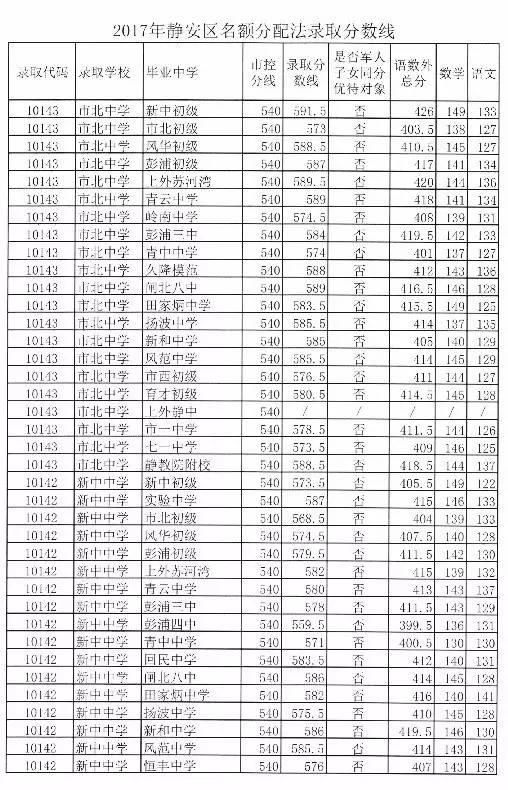 2017年静安区名额分配法录取分数线
录取代码 录取学校 毕业中学 市控分线 录取分数线 是否军人子女同分优待对象 语数外总分 数学 语文
10143 市北中学 新中初级 540 591.5 否 426 149 133
10143 市北中学 市北初级 540 573 否 403.5 138 127
10143 市北中学 风华初级 540 588.5 否 410.5 145 127
10143 市北中学 彭浦初级 540 587 否 417 141 134
10143 市北中学 上外苏河湾 540 589.5 否 420 144 136
10143 市北中学 青云中学 540 589 否 418 141 134
10143 市北中学 岭南中学 540 574.5 否 408 139 131
10143 市北中学 彭浦三中 540 584 否 419.5 142 133
10143 市北中学 青中中学 540 574 否 401 137 127
10143 市北中学 久隆模范 540 588 否 412 143 136
10143 市北中学 闸北八中 540 589 否 416.5 146 128
10143 市北中学 田家炳中学 540 583.5 否 415.5 149 125
10143 市北中学 扬波中学 540 585.5 否 414 137 135
10143 市北中学 新和中学 540 585 否 405 140 129
10143 市北中学 风范中学 540 585.5 否 414 145 129
10143 市北中学 市西初级 540 576.5 否 411 144 127
10143 市北中学 育才初级 540 580.5 否 414.5 145 128
10143 市北中学 上外静中 540 / / / / /
10143 市北中学 市一中学 540 578.5 否 411.5 144 126
10143 市北中学 七一中学 540 573.5 否 409 146 125
10143 市北中学 静教院附校 540 588.5 否 418.5 144 137
10142 新中中学 新中初级 540 573.5 否 405.5 149 122
10142 新中中学 实验中学 540 587 否 415 146 133
10142 新中中学 市北初级 540 568.5 否 404 139 133
10142 新中中学 风华初级 540 574.5 否 407.5 140 128
10142 新中中学 彭浦初级 540 579.5 否 411.5 142 130
10142 新中中学 上外苏河湾 540 582 否 415 139 132
10142 新中中学 青云中学 540 580 否 413 143 137
10142 新中中学 彭浦三中 540 578 否 411.5 143 129
10142 新中中学 彭浦四中 540 559.5 否 399.5 136 131
10142 新中中学 青中中学 540 571 否 400.5 130 130
10142 新中中学 回民中学 540 583.5 否 412 140 131
10142 新中中学 闸北八中 540 586 否 414 145 128
10142 新中中学 田家炳中学 540 582 否 416 140 141
10142 新中中学 扬波中学 540 575.5 否 410 145 128
10142 新中中学 新和中学 540 586 否 419.5 146 130
10142 新中中学 风范中学 540 585.5 否 414 143 131
10142 新中中学 恒丰中学 540 576 否 407 143 128